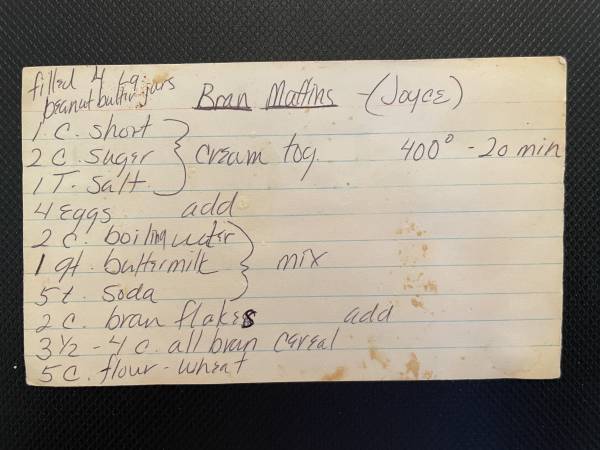 filled 4 Lg.
peanut butter jars
Bran Maffins - (Joyce)
1 C. short
2 C. sugar } cream tog. 400° - 20 min
1 T. salt
4 eggs add
2 c. boiling water
1 qt. buttermilk } mix
5 t. soda
2 c. bran flakes add
3 1/2 - 4 c. all bran cereal
5 C. flour - wheat